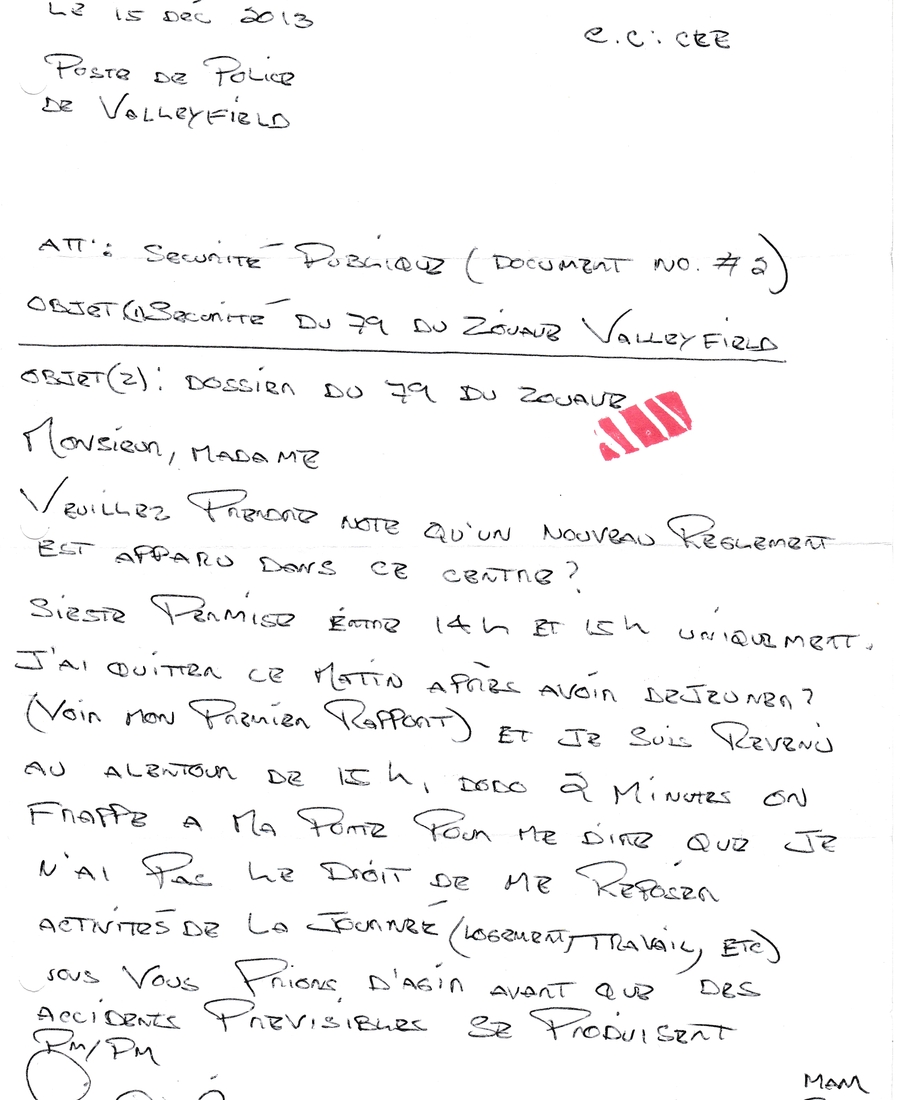 Le 15 Déc 2013
C.C: CEE
Poste de Police
de Valleyfield
Att: Securité Publique (Document no. # 2)
Objet(1) Securité du 79 du Zouave Valleyfield
Objet(2): Dossier du 79 du Zouave
Monsieur, Madame
Veuillez Prendre note qu'un nouveau Règlement
est apparu dans ce centre?
Sieste Permise entre 14h et 15h uniquement.
J'ai quitter ce matin après avoir dejeuner?
(Voir mon Premier Rapport) et je suis revenu
au alentour de 15h, dodo 2 minutes on
Frappe a ma Porte Pour me dire que je
n'ai Pas le Droit de me Reposer
activités de la Journée (logement, travail, etc)
vous Prions d'agir avant que des
accidents Prévisibles se Produisent
PM/PM
MAM